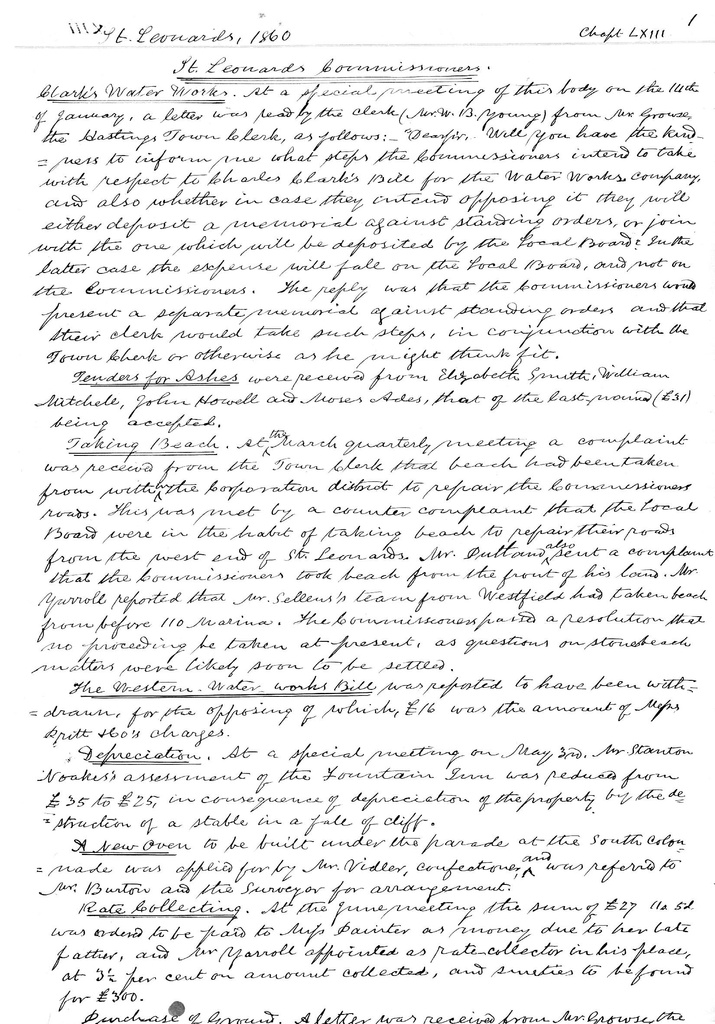 St. Leonards, 1860 Chapt LXIII 1
St. Leonards Commissioners.
Clark's Water Works. At a special meeting of this body on the 14th
of January, a letter was read by the clerk (Mr. W. B. Young) from Mr. Growse,
the Hastings Town Clerk, as follows:- Dear sir, Will you have the kind-
=ness to inform me what steps the Commissioners intend to take
with respect to Charles Clark's Bill for the Water Works company,
and also whether in case they intend opposing it they will
either deposit a memorial against standing orders, or join
with the one which will be deposited by the Local Board? In the
latter case the expense will fall on the Local Board, and not on
the Commissioners. The reply was that the Commissioners would
present a separate memorial against standing orders and that
their clerk would take such steps, in conjunction with the
Town Clerk or otherwise as he might think fit.
Tenders for Ashes were received from Elizabeth Smith, William
Mitchele, John Howell and Moses Ades, that of the last named (£31)
being accepted.
Taking Beach. At the March quarterly meeting a complaint
was received from the Town Clerk that beach had been taken
from within the Corporation district to repair the Commissioners
roads. This was met by a counter complaint that the Local
Board were in the habit of taking beach to repair their roads
from the west end of St. Leonards. Mr. Putland also sent a complaint
that the Commissioners took beach from the front of his land. Mr.
Yarroll reported that Mr. Sellens's team from Westfield had taken beach
from before 110 Marina. The Commissioners passed a resolution that
no proceeding be taken at present, as questions on stonebeach
matters were likely soon to be settled.
The Western Water works Bill was reported to have been with-
=drawn, for the opposing of which, £16 was the amount of Messrs
Pritt &Co's charges.
Depreciation. At a special meeting on May 3rd. Mr. Stanton
Noakes's assessment of the Fountain Inn was reduced from
£35 to £25, in consequence of depreciation of the property by the de-
=struction of a stable in a fall of cliff.
A New Oven to be built under the parade at the South Colon-
=nade was applied for by Mr. Vidler, confectioner, and was referred to
Mr. Burton and the Surveyor for arrangement.
Rate Collecting. At the June meeting the sum of £27 11s 5d
was ordered to be paid to Miss Painter as money due to her late
father, and Mr Yarroll appointed as rate-collector in his place,
at 3½ per cent on amount collected, and sureties to be found
for £300.
Purchase of Ground. A letter was received from Mr. Growse, the